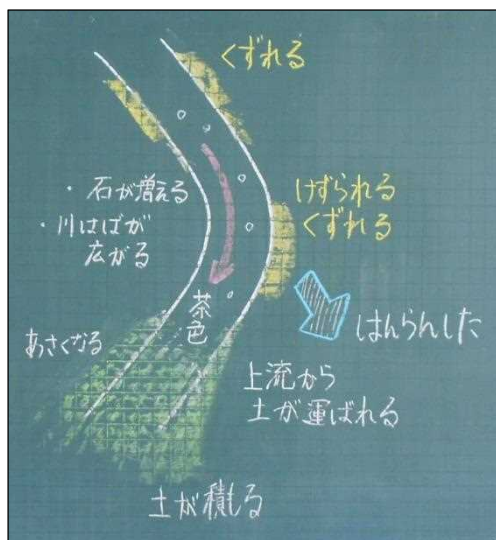 くずれる
・石が増える
・川はばが
広がる
けずられる
くずれる
茶色
はんらんした
あさくなる
上流から
土が運ばれる
土が積もる